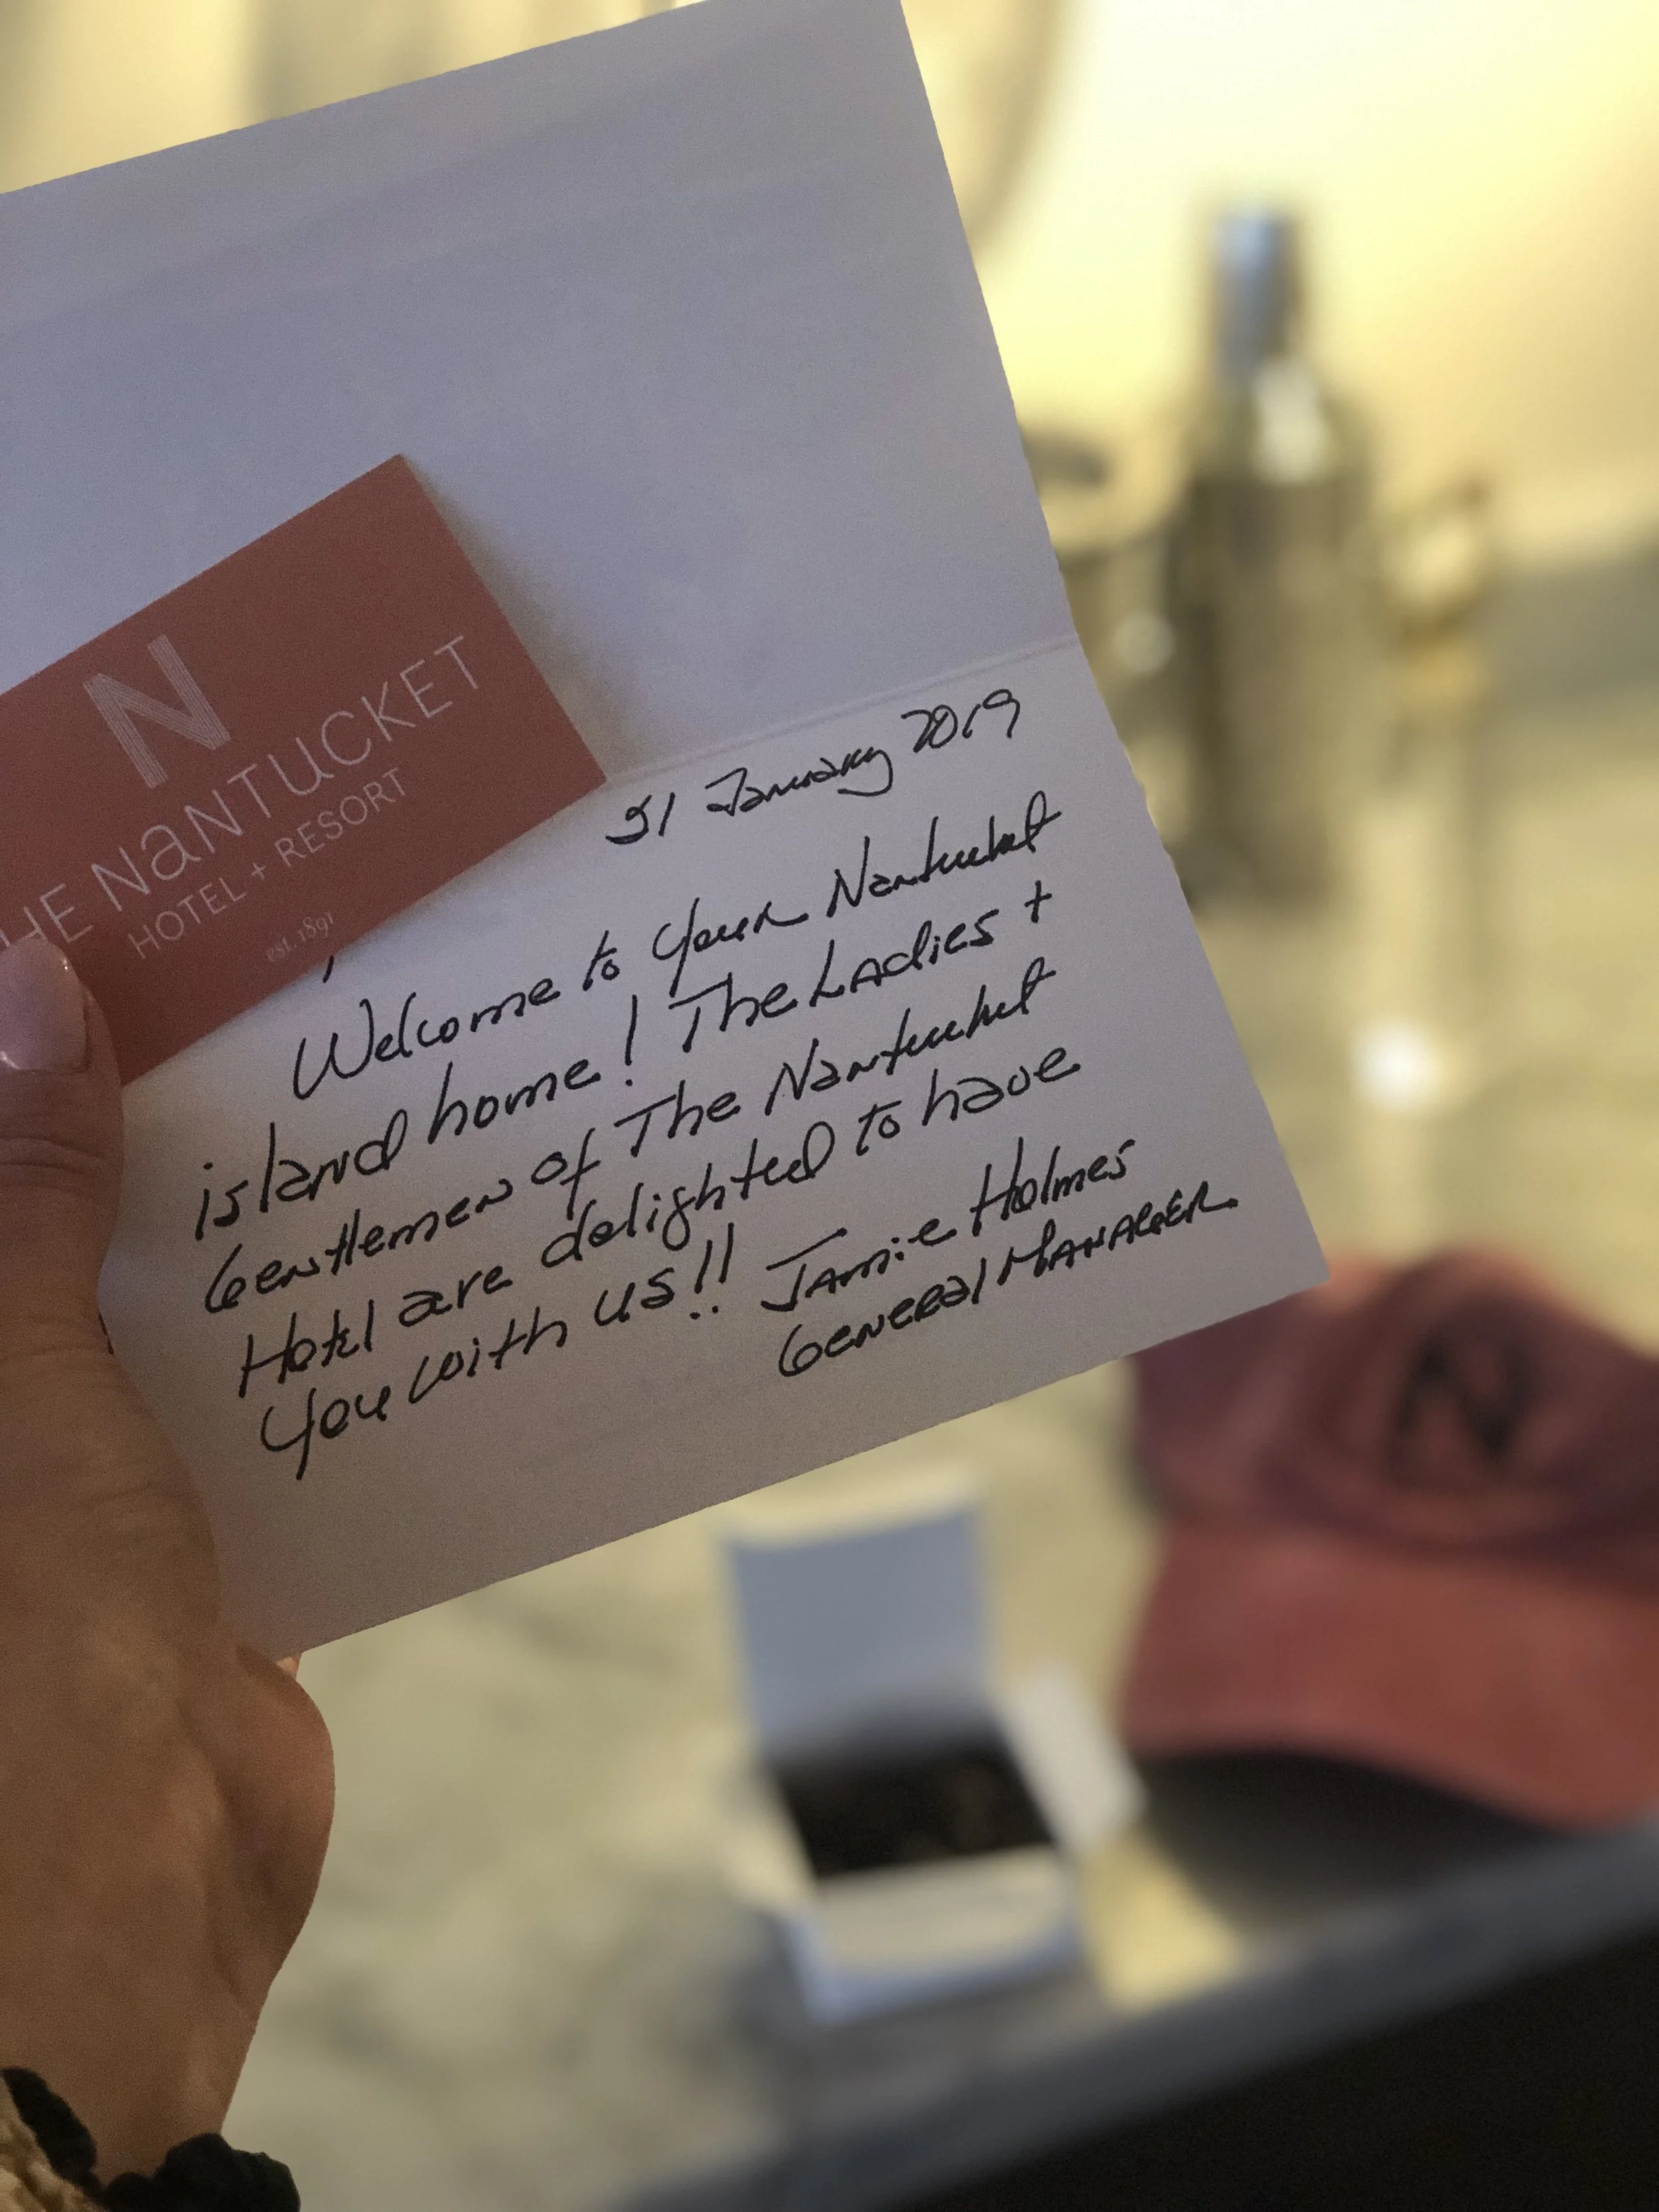 N
HE NANTUCKET
HOTEL + RESORT
est. 1891
31 January 2019
Welcome to your Nantucket
island home! The Ladies +
Gentlemen of The Nantucket
Hotel are delighted to have
you with us!! Jamie Holmes
General Manager
N